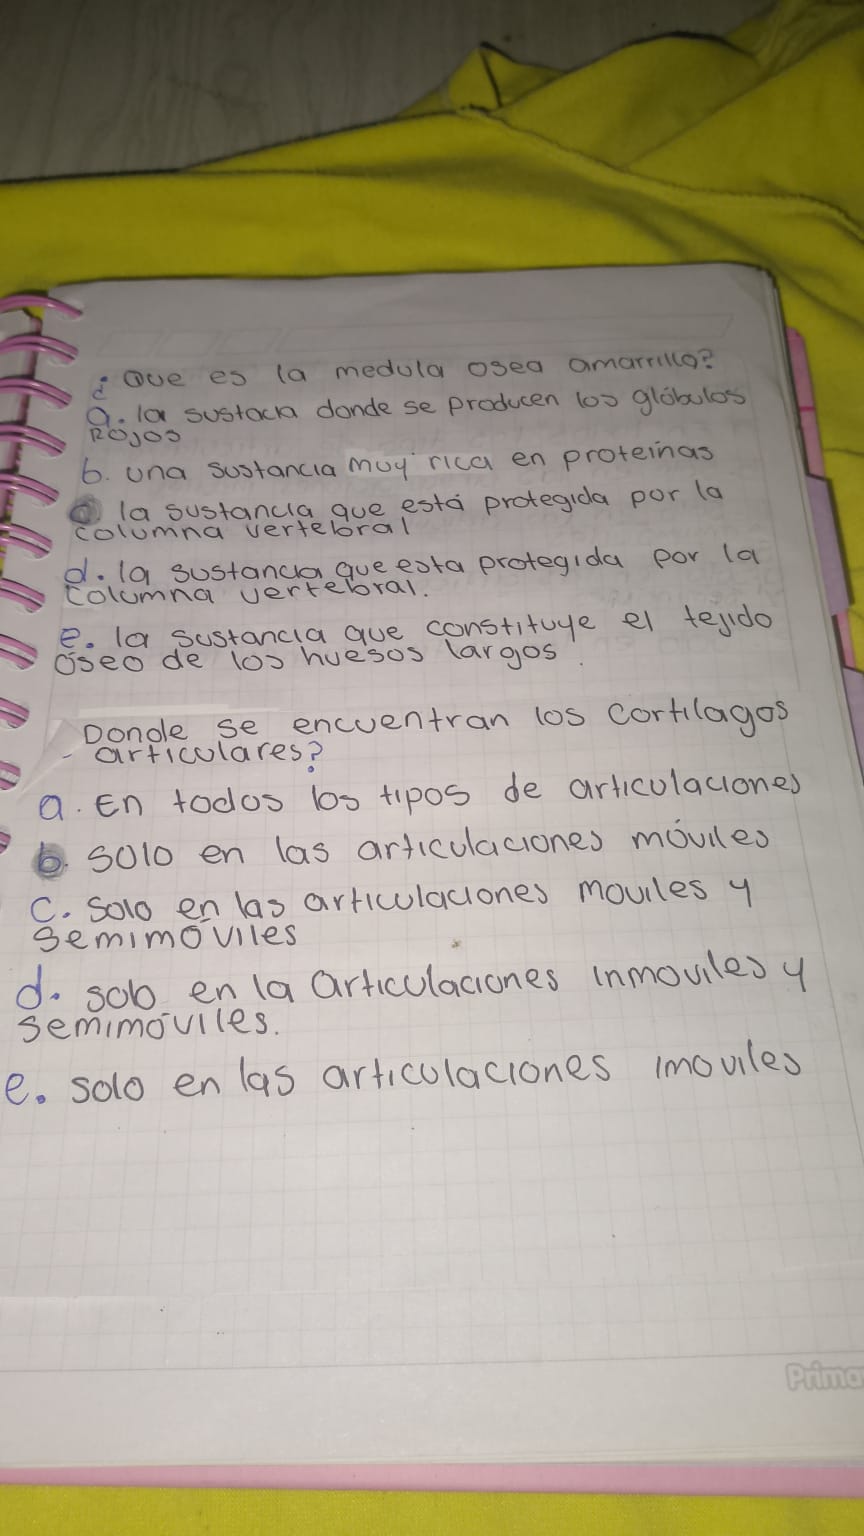 ¿Que es la medula osea amarrilla?
a. la sustacia donde se producen los glóbulos
Rojos
b. una sustancia muy rica en proteinas
c la sustancia que está protegida por la
columna vertebral
d. la sustancia que esta protegida por la
columna vertebral.
e. la sustancia que constituye el tejido
óseo de los huesos largos.
Donde se encuentran los cortilagos
- articulares?
a. En todos los tipos de articulaciones
b. solo en las articulaciones móviles
c. Solo en las articulaciones moviles y
semimóviles
d. solo en la articulaciones inmoviles y
semimóviles.
e. solo en las articulaciones imoviles
Prima